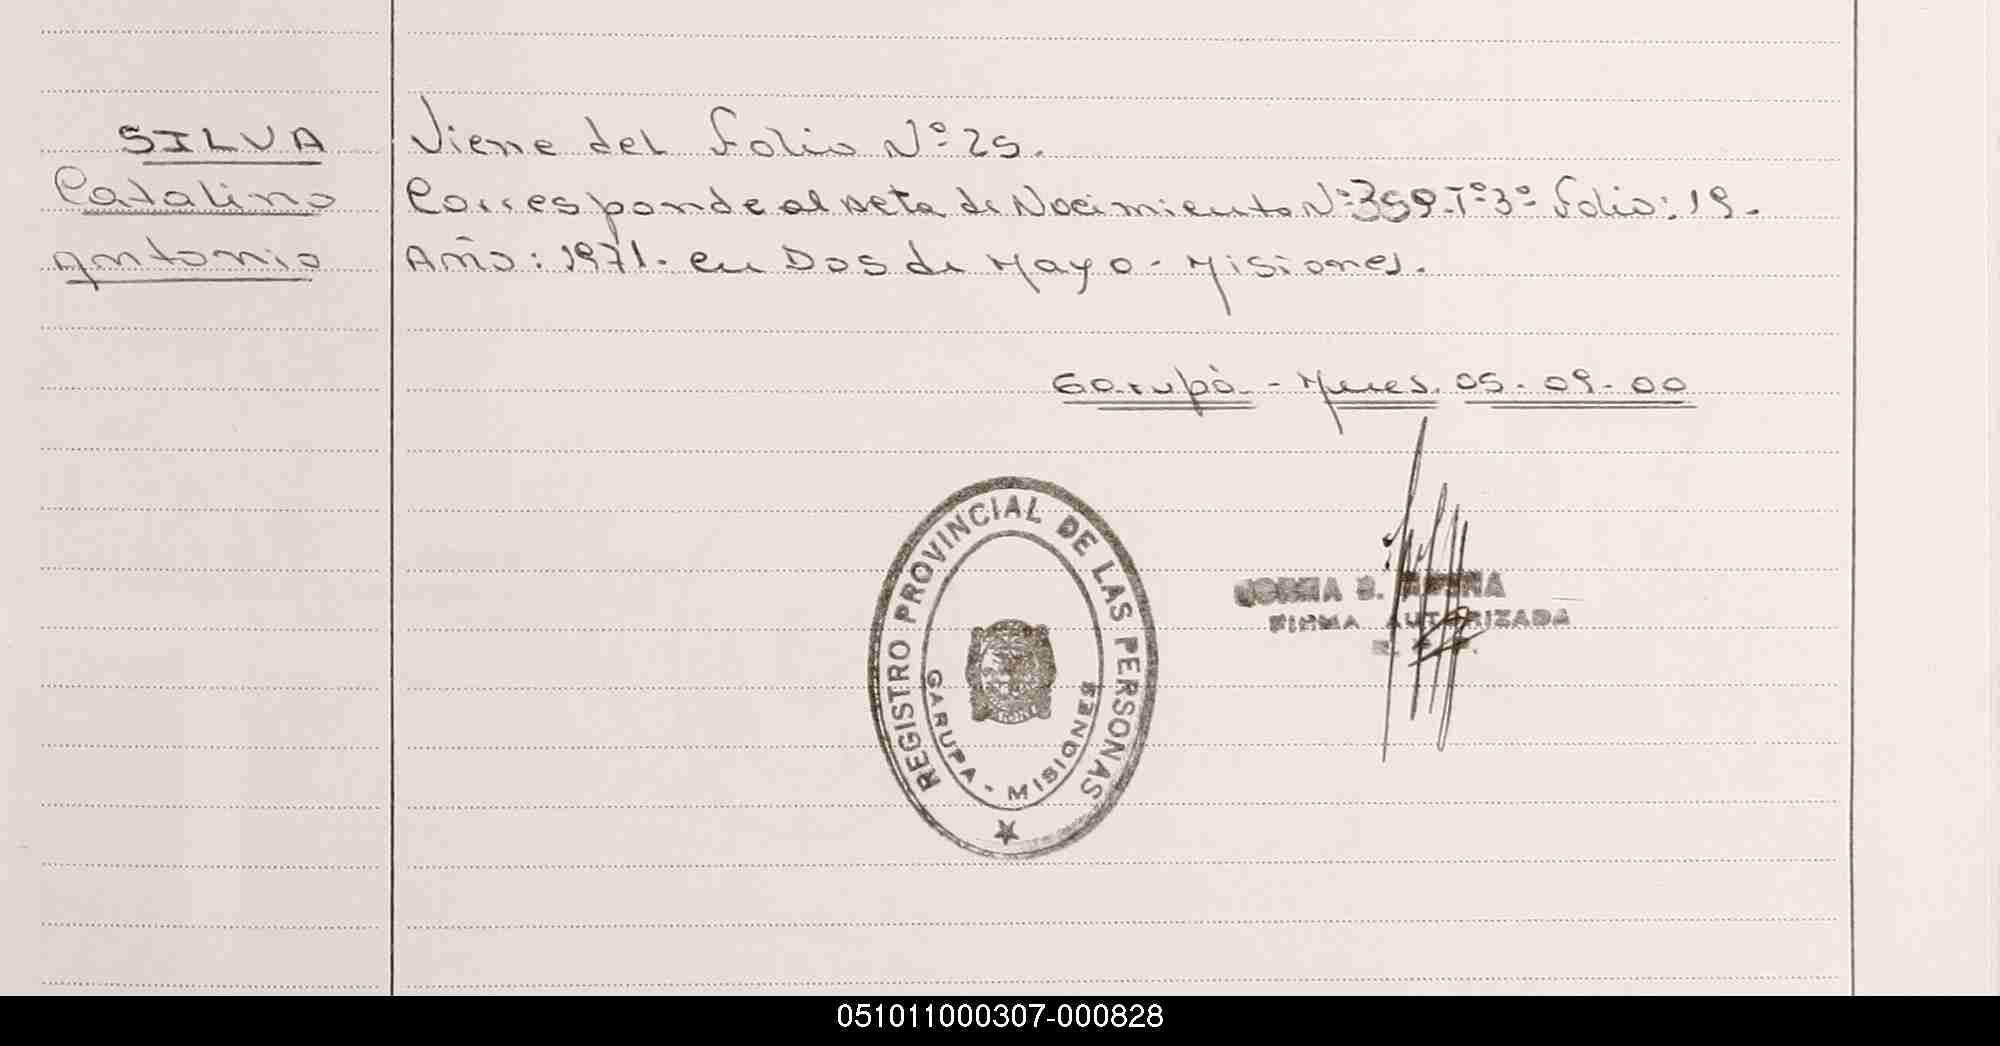 SILVA
Catalino
Antonio
Viene del folio Nº 25.
Corresponde al Acta de Nacimiento Nº 359. Tº 3º folio: 19.
Año: 1971. en Dos de Mayo - Misiones.
Garupà - Mnes. 05-09-00
REGISTRO PROVINCIAL DE LAS PERSONAS
GARUPA - MISIONES
NORMA B.
FIRMA AUTORIZADA
051011000307-000828